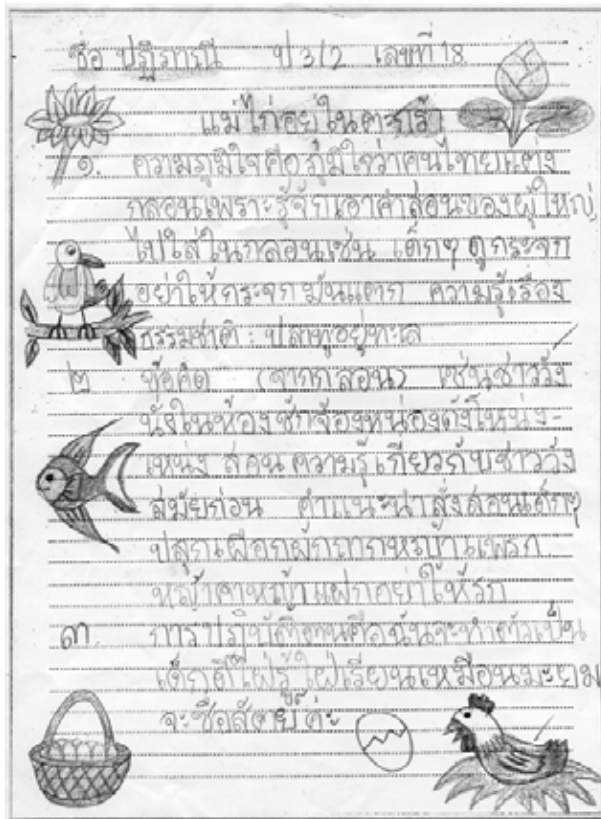 ชื่อ ปฏิภารณี ป 3/2 เลขที่ 18
แม่ไก่อยู่ในตะกร้า
๑. ความภูมิใจคือภูมิใจว่าคนไทยแต่ง
กลอนเพราะรู้จักเอาคำสอนของผู้ใหญ่
ไปใส่ในกลอนเช่น เด็กๆ ดูกระจก
อย่าให้กระจกมันแตก ความรู้เรื่อง
ธรรมชาติ : ปลาทูอยู่ทะเล
๒ ข้อคิด (จากกลอน) เช่นชาววัง
นั่งในห้องชักจ้องหน่องดังโหน่ง-
เหน่ง สอนความรู้เกี่ยวกับชาววัง
สมัยก่อน คำแนะนำสั่งสอนเด็กๆ
ปลูกเผือกผักถากหญ้าแพรก
หญ้าคาหญ้าแฝกอย่าให้รก
๓. การปฏิบัติตนคือฉันจะทำตัวเป็น
เด็กดีใฝ่รู้ใฝ่เรียนเหมือนมะยม
จะซื่อสัตย์ค่ะ